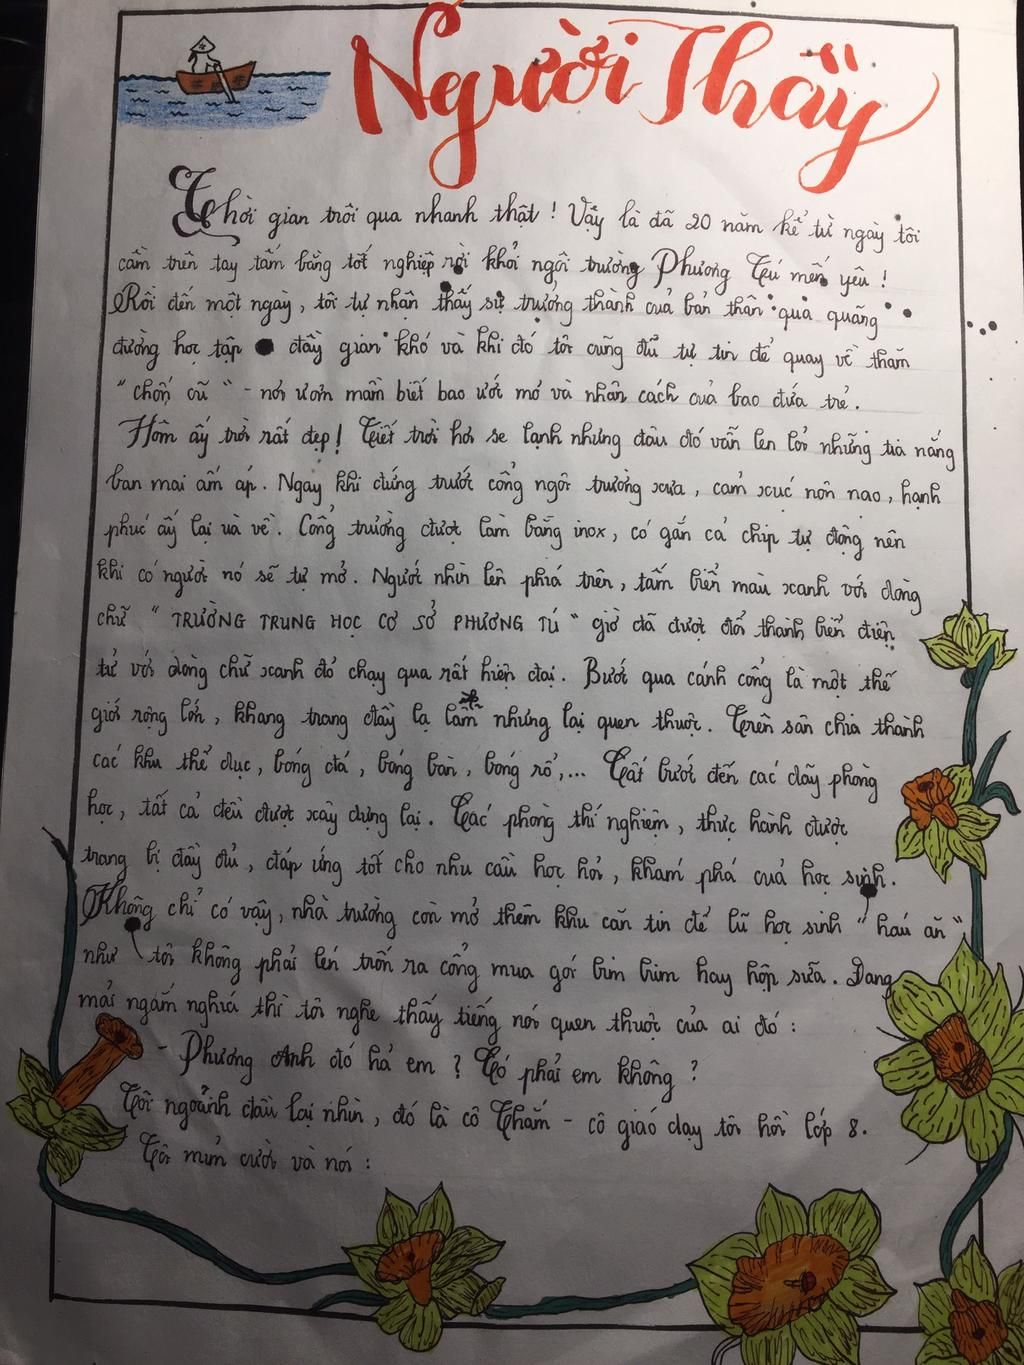 Người Thầy
Thời gian trôi qua nhanh thật ! Vậy là đã 20 năm kể từ ngày tôi
cầm trên tay tấm bằng tốt nghiệp rời khỏi ngôi trường Phương Tú mến yêu !
Rồi đến một ngày, tôi tự nhận thấy sự trưởng thành của bản thân qua quãng
đường học tập đầy gian khó và khi đó tôi cũng đủ tự tin để quay về thăm
" chốn cũ " - nơi ươm mầm biết bao ước mơ và nhân cách của bao đứa trẻ.
Hôm ấy trời rất đẹp! Tiết trời hơi se lạnh nhưng đâu đó vẫn len lỏi những tia nắng
ban mai ấm áp. Ngay khi đứng trước cổng ngôi trường xưa, cảm xúc nôn nao, hạnh
phúc ấy lại ùa về. Cổng trường được làm bằng inox, có gắn cả chip tự động nên
khi có người nó sẽ tự mở. Ngước nhìn lên phía trên, tấm biển màu xanh với dòng
chữ " TRƯỜNG TRUNG HỌC CƠ SỞ PHƯƠNG TÚ " giờ đã được đổi thành biển điện
tử với dòng chữ xanh đỏ chạy qua rất hiện đại. Bước qua cánh cổng là một thế
giới rộng lớn, khang trang đầy lạ lẫm nhưng lại quen thuộc. Trên sân chia thành
các khu thể dục, bóng đá, bóng bàn, bóng rổ,... Cất bước đến các dãy phòng
học, tất cả đều được xây dựng lại. Các phòng thí nghiệm, thực hành được
trang bị đầy đủ, đáp ứng tốt cho nhu cầu học hỏi, khám phá của học sinh.
Không chỉ có vậy, nhà trường còn mở thêm khu căn tin để lũ học sinh " háu ăn "
như tôi không phải lén trốn ra cổng mua gói bim bim hay hộp sữa. Đang
mải ngắm nghía thì tôi nghe thấy tiếng nói quen thuộc của ai đó :
- Phương Anh đó hả em ? Có phải em không ?
Tôi ngoảnh đầu lại nhìn, đó là cô Thắm - cô giáo dạy tôi hồi lớp 8.
Tôi mỉm cười và nói :